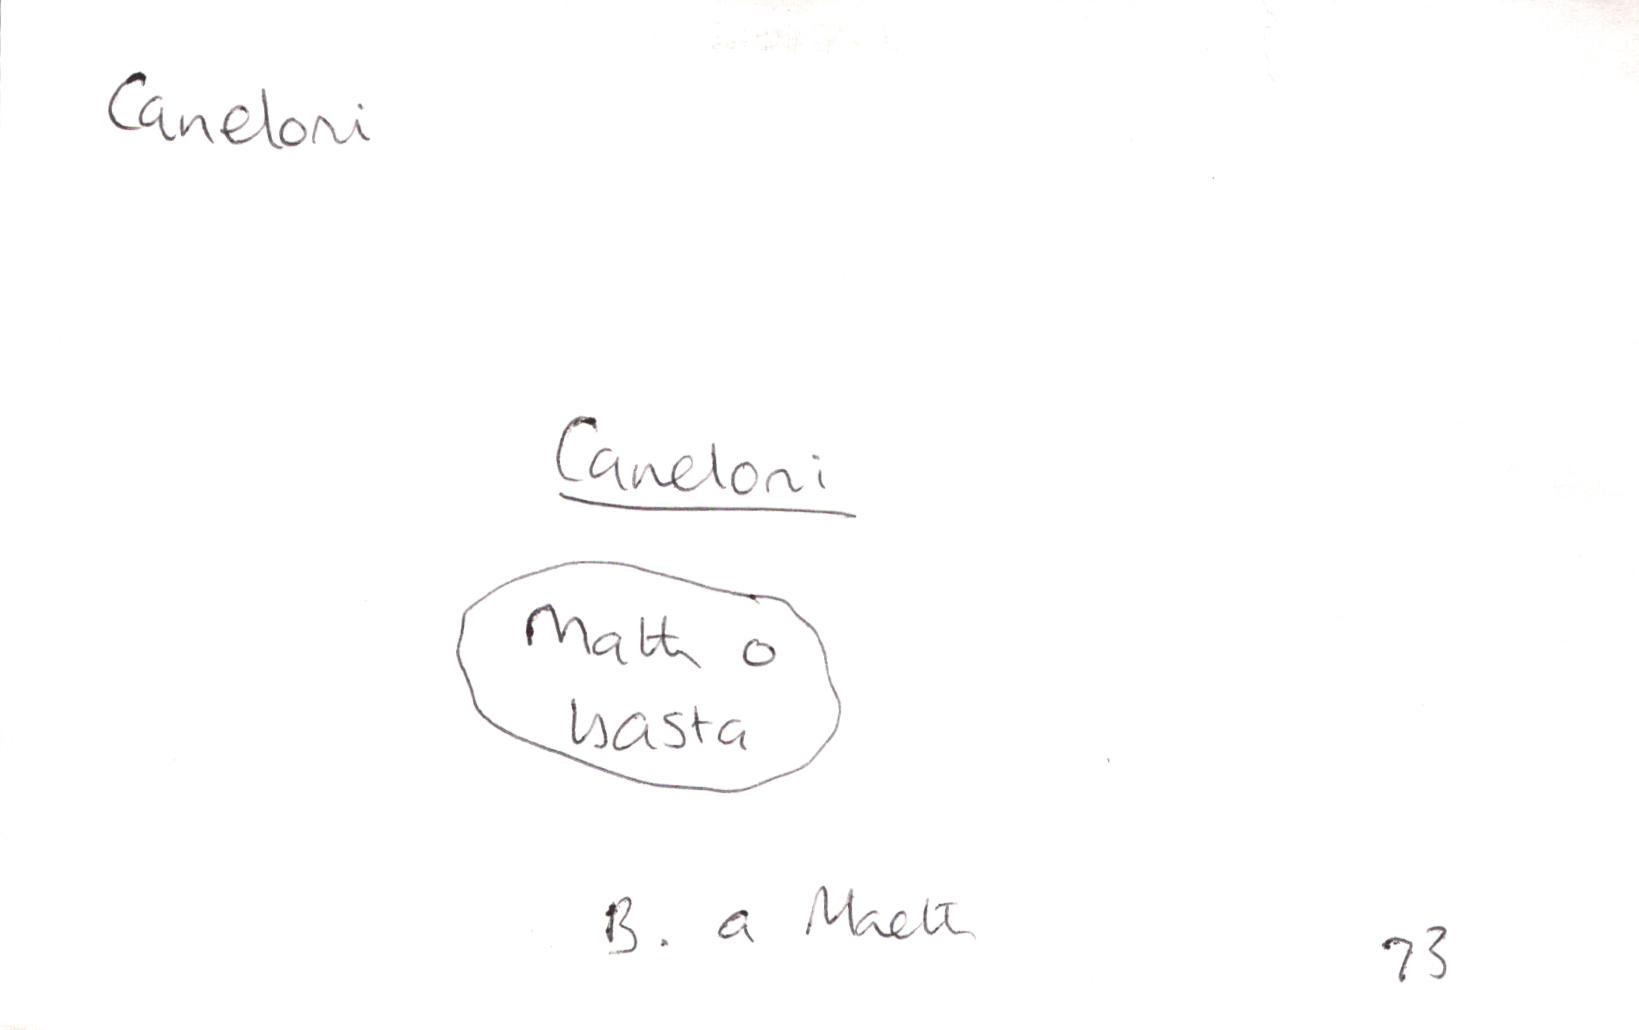 Caneloni
Caneloni
Math o
basta
B. a Maeth
73